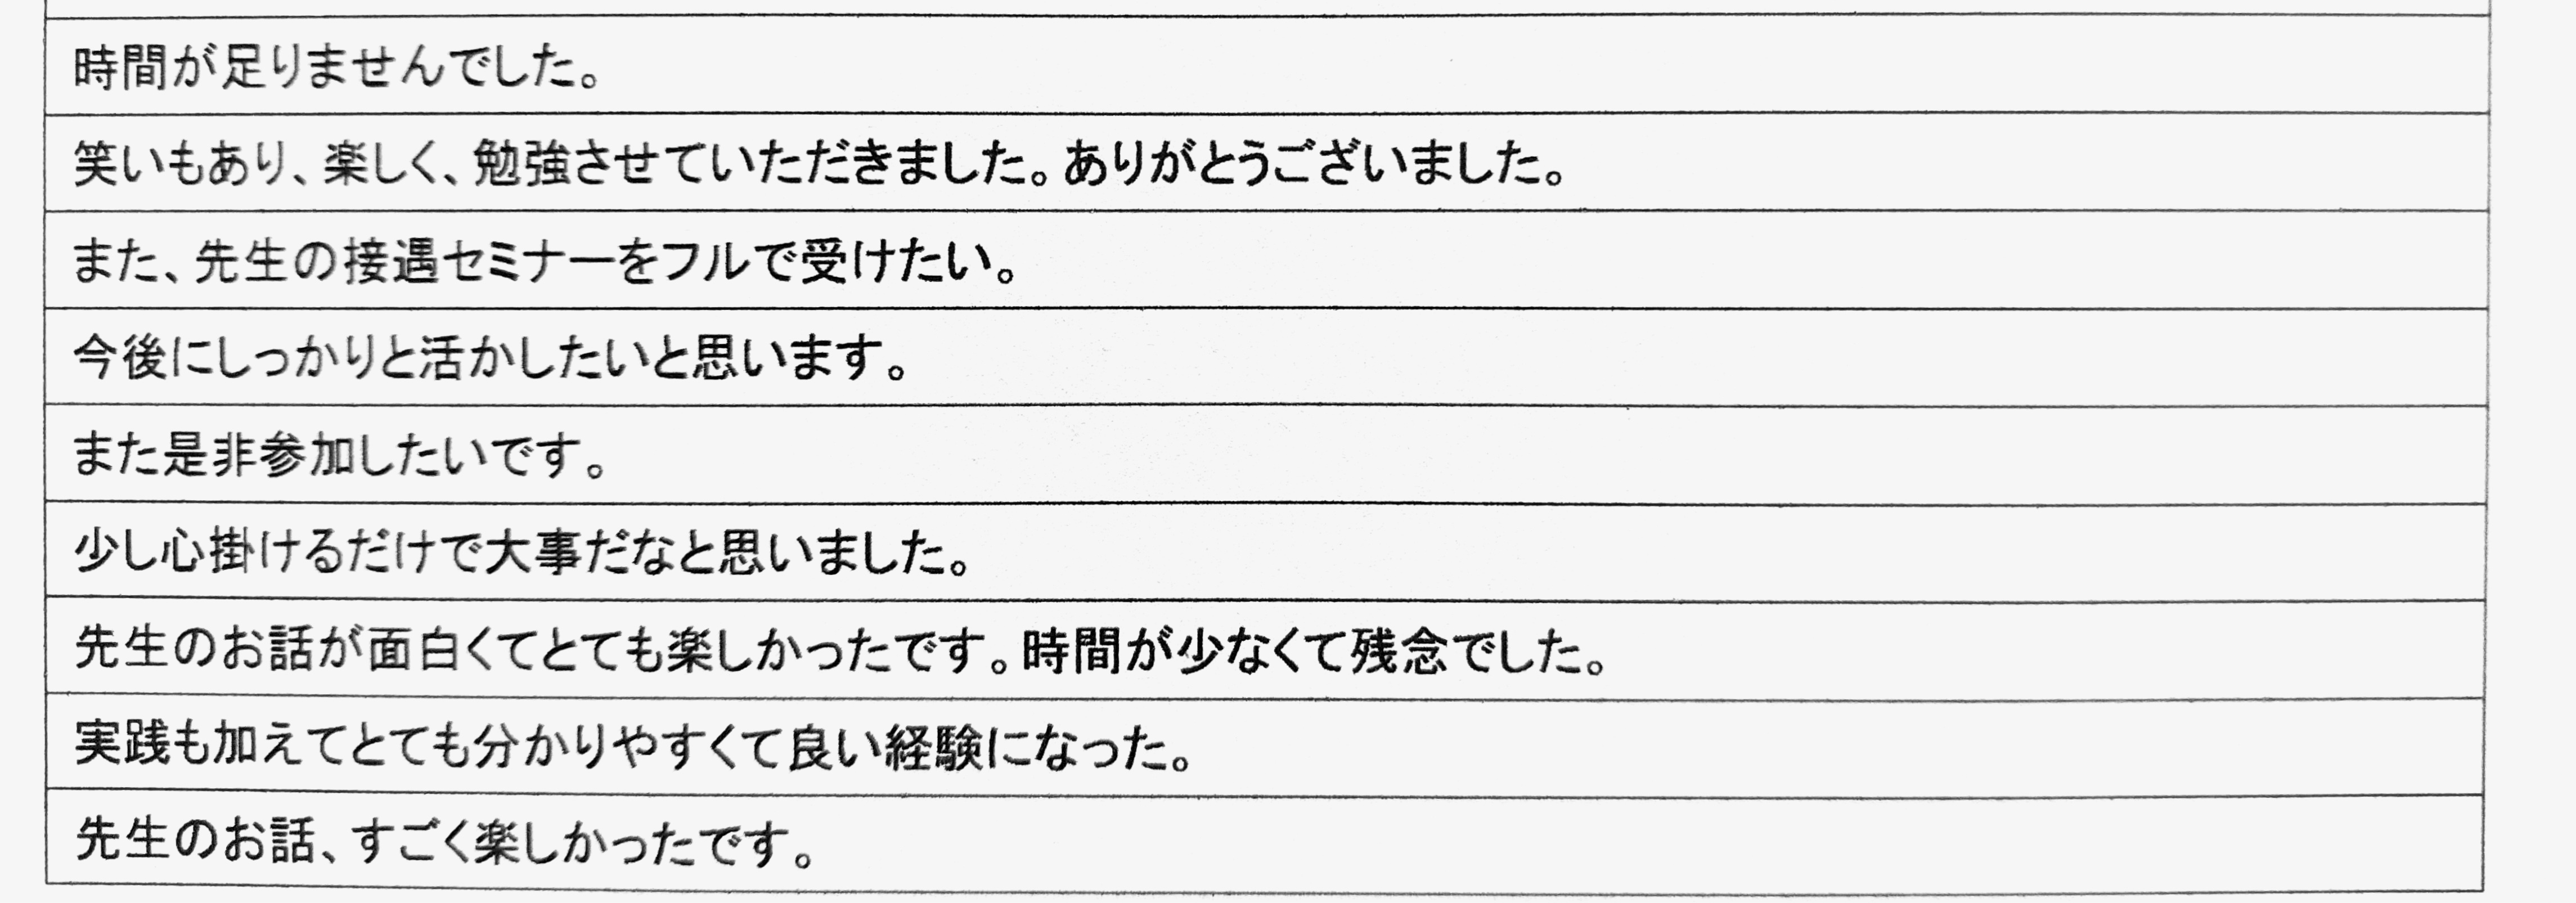 時間が足りませんでした。
笑いもあり、楽しく、勉強させていただきました。ありがとうございました。
また、先生の接遇セミナーをフルで受けたい。
今後にしっかりと活かしたいと思います。
また是非参加したいです。
少し心掛けるだけで大事だなと思いました。
先生のお話が面白くてとても楽しかったです。時間が少なくて残念でした。
実践も加えてとても分かりやすくて良い経験になった。
先生のお話、すごく楽しかったです。